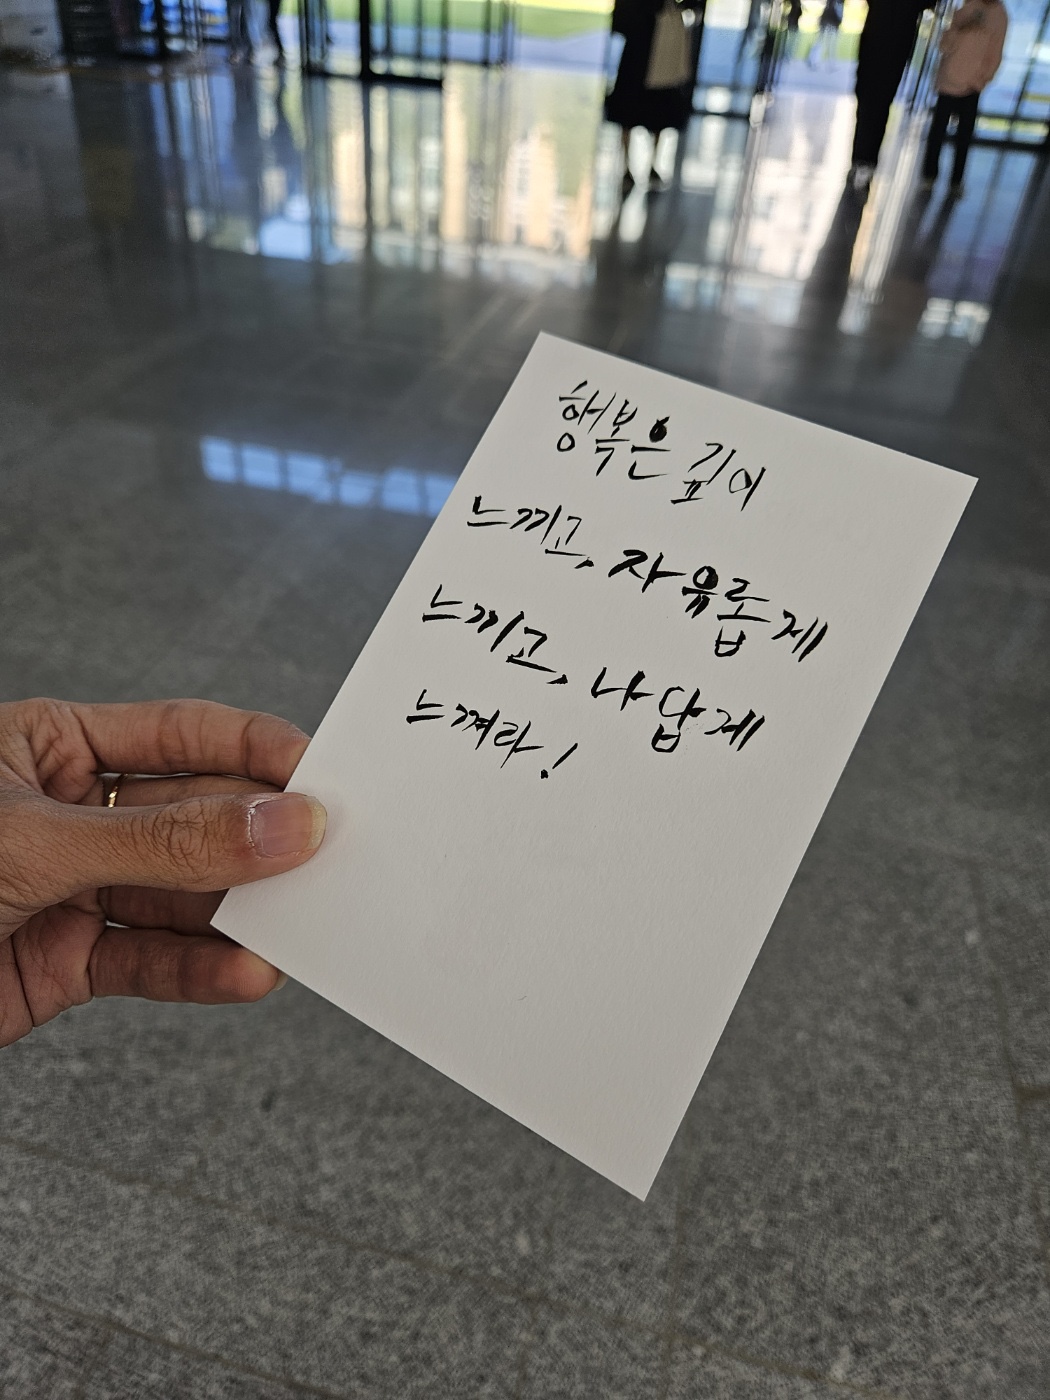 행복은 깊이
느끼고, 자유롭게
느끼고, 나답게
느껴라!